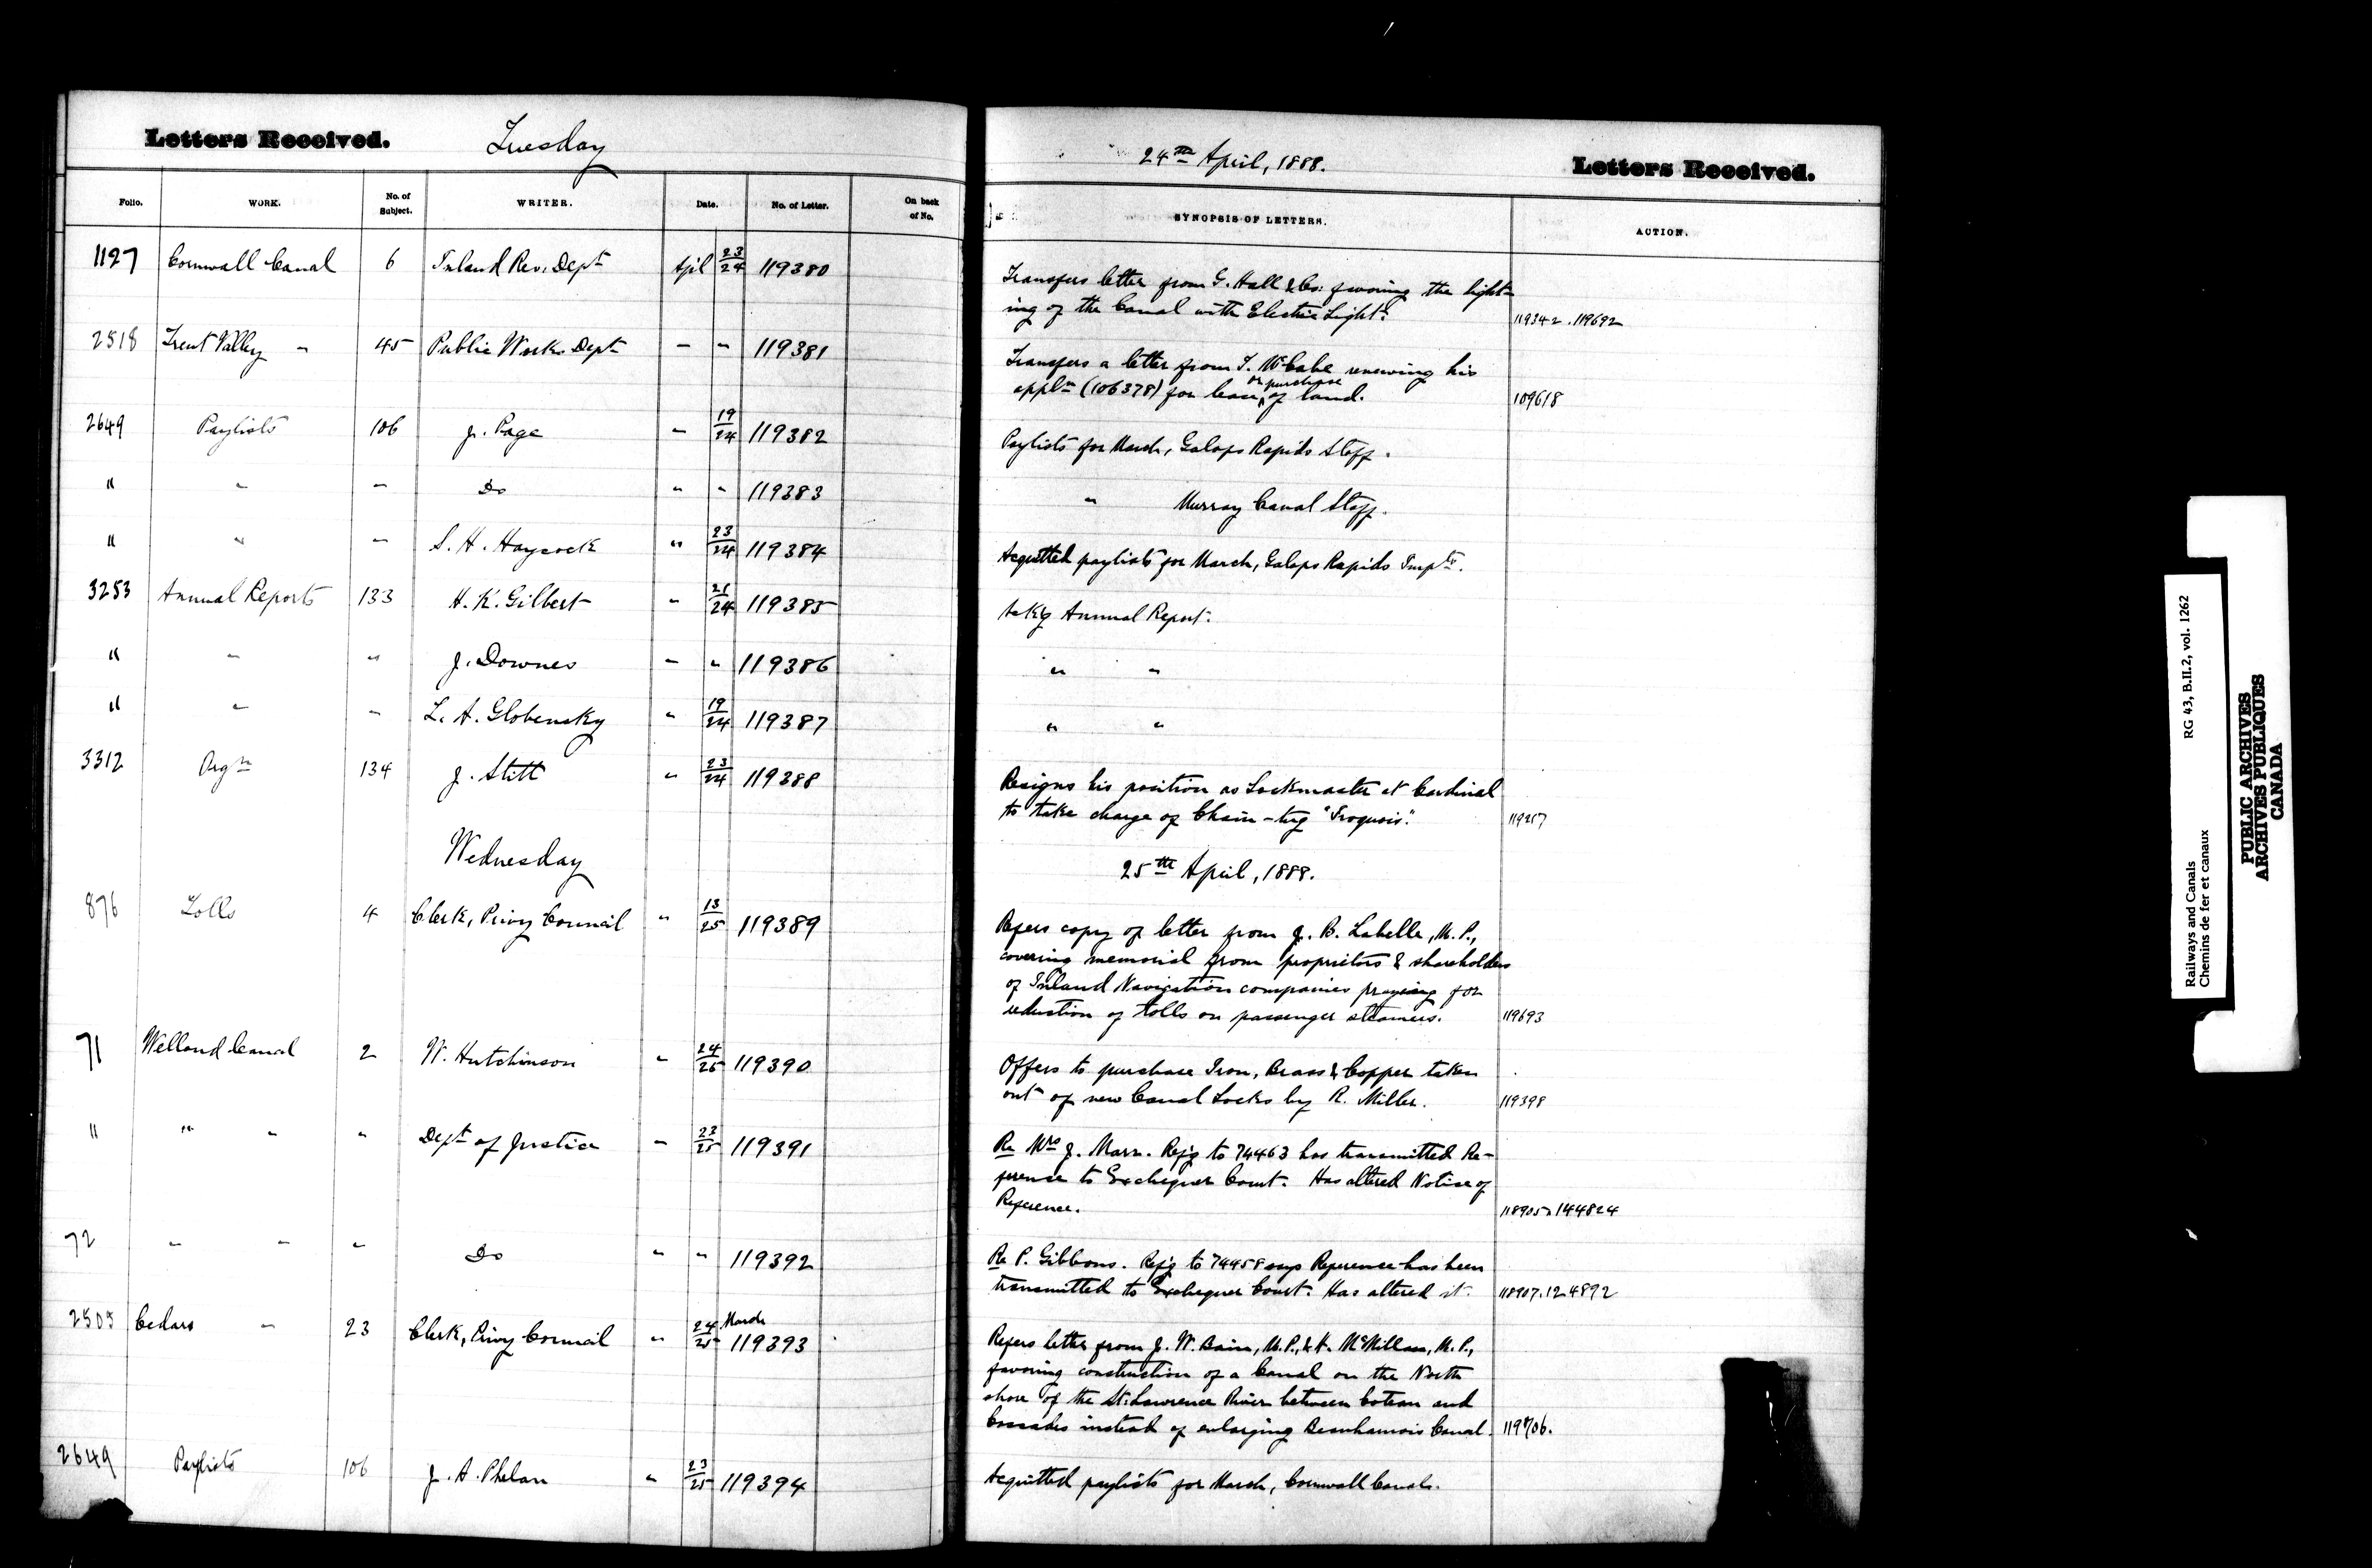 Letters Received. Tuesday 24th April, 1888. Letters Received.
Folio. WORK. No. of Subject. WRITER. Date. No. of Letter. On back of No. SYNOPSIS OF LETTERS. ACTION.
1127 Cornwall Canal 6 Inland Rev. Dept Apl 23/24 119380 Transfers letter from G. Hall & Co: favoring the light-
ing of the Canal with Electric Light. 119342. 119692
2518 Trent Valley " 45 Public Works Dept " " 119381 Transfers a letter from T. McCabe renewing his
appln (106378) for lease or purchase of land. 109618
2649 Paylists 106 J. Page " 19/24 119382 Paylists for March, Galops Rapids Staff.
" " " Do " " 119383 " Murray Canal Staff.
" " " S. H. Haycock " 23/24 119384 Acquitted paylists for March, Galops Rapids Impts.
3253 Annual Reports 133 H. K. Gilbert " 21/24 119385 Ackg Annual Report.
" " " J. Downes " " 119386 " "
" " " L. A. Globensky " 19/24 119387 " "
3312 Orgn 134 J. Stitt " 23/24 119388 Resigns his position as Lockmaster at Cardinal
to take charge of Chain-tug "Iroquois". 119217
Wednesday 25th April, 1888.
876 Tolls 4 Clerk, Privy Council " 13/25 119389 Refers copy of letter from J. B. Labelle, M.P.,
covering memorial from proprietors & shareholders
of Inland Navigation companies praying for
reduction of tolls on passenger steamers. 119693
71 Welland Canal 2 W. Hutchinson " 24/25 119390 Offers to purchase Iron, Brass & Copper taken
out of new Canal Locks by R. Miller. 119398
" " " " Dept of Justice " 23/25 119391 Re Mrs J. Marr. Refg to 74463 has transmitted Re-
ference to Exchequer Court. Has altered Notice of
Reference. 118905, 144824
72 " " " Do " " 119392 Re P. Gibbons. Refg to 74458 says Reference has been
transmitted to Exchequer Court. Has altered it. 118907. 124892
2505 Cedars " 23 Clerk, Privy Council " 24 March/25 119393 Refers letter from J. W. Bain, M.P., & H. McMillan, M.P.,
favoring construction of a Canal on the North
shore of the St. Lawrence River between Coteau and
Cascades instead of enlarging Beauharnois Canal. 119706.
2649 Paylists 106 J. A. Phelan " 23/25 119394 Acquitted paylists for March, Cornwall Canals.
Railways and Canals RG 43, B.II.2, vol. 1262
Chemins de fer et canaux
PUBLIC ARCHIVES
ARCHIVES PUBLIQUES
CANADA